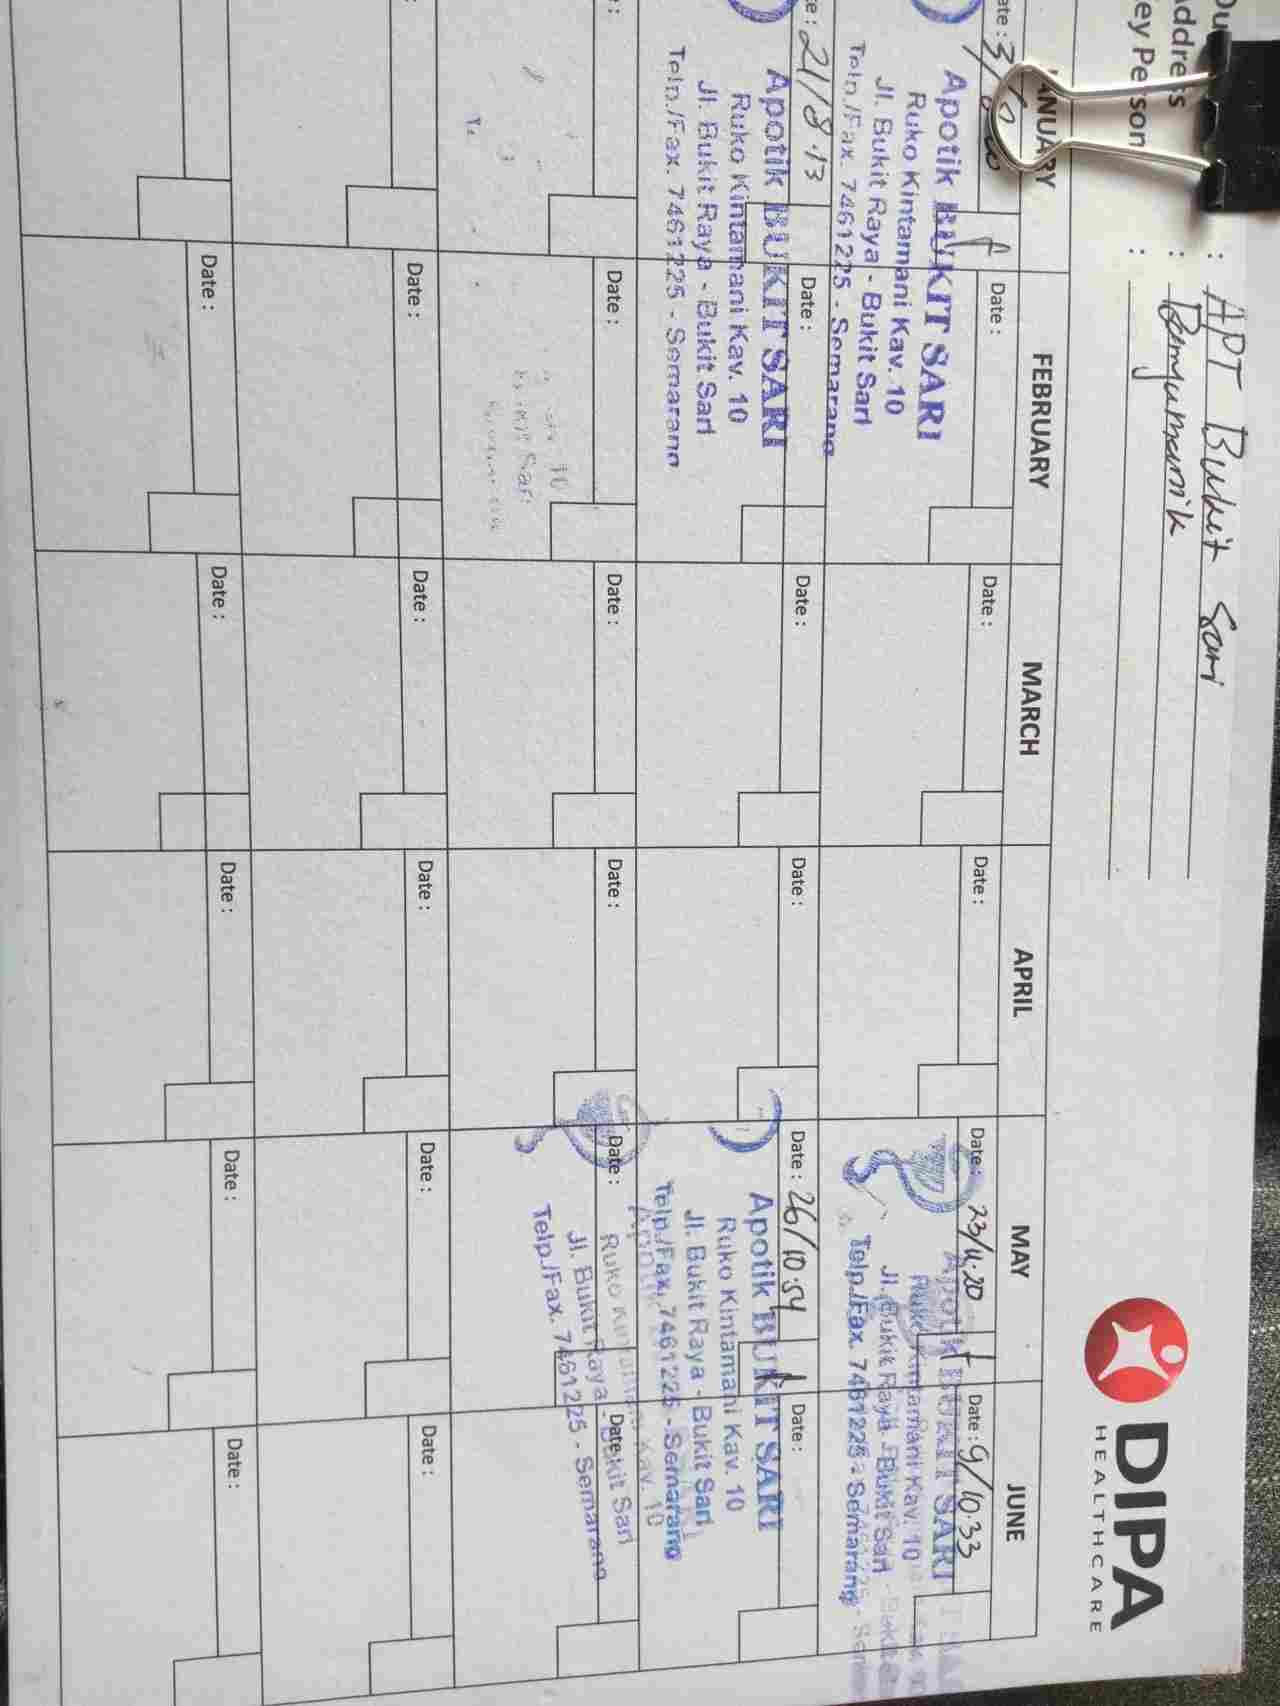 DIPA
HEALTHCARE
: APT Bukit Sari
Address : Banyumanik
ey Person :
ANUARY FEBRUARY MARCH APRIL MAY JUNE
ate : 3/ Date : Date : Date : Date : 23/11.20 Date : 9/10.33
Apotik BUKIT SARI
Ruko Kintamani Kav. 10
Jl. Bukit Raya - Bukit Sari
Telp./Fax. 7461225 - Semarang
Apotik BUKIT SARI
Ruko Kintamani Kav. 10
Jl. Bukit Raya - Bukit Sari
Telp./Fax. 7461225 - Semarang
te : 21/8.13 Date : Date : Date : Date : 26/10.54 Date :
Apotik BUKIT SARI
Ruko Kintamani Kav. 10
Jl. Bukit Raya - Bukit Sari
Telp./Fax. 7461225 - Semarang
Apotik BUKIT SARI
Ruko Kintamani Kav. 10
Jl. Bukit Raya - Bukit Sari
Telp./Fax. 7461225 - Semarang
: Date : Date : Date : Date : Date :
Ruko Kintamani Kav. 10
Jl. Bukit Raya - Bukit Sari
Telp./Fax. 7461225 - Semarang
: Date : Date : Date : Date : Date :
Date : Date : Date : Date : Date :